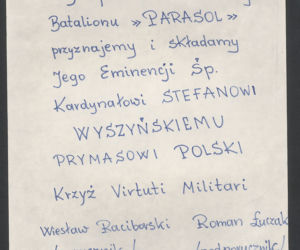 Batalionu »PARASOL»
przyznajemy i składamy
Jego Eminencji Śp.
Kardynałowi STEFANOWI
WYSZYŃSKIEMU
PRYMASOWI POLSKI
Krzyż Virtuti Militari
Wiesław Raciborski Roman Łuczak